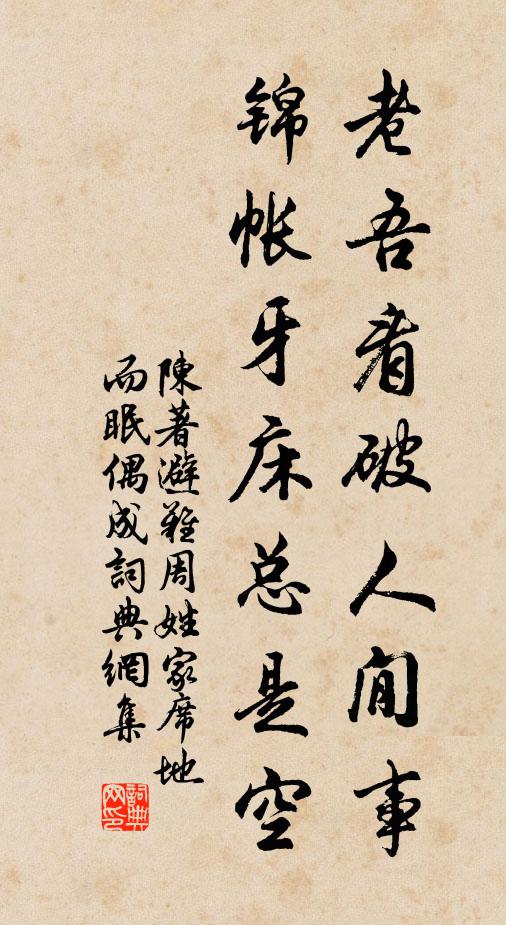 老吾看破人間事
锦帐牙床总是空
陳著避難周姓家席地
而眠偶成詞典網集
詞典
网印